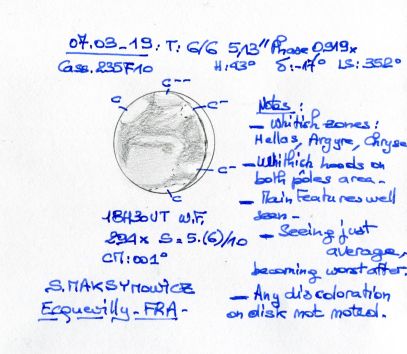 07.03_19: T: 6/6 5,13" Phase 0.919x
Cass. 235F10 H: 43° δ: -17° LS: 352°
C--
C
C-
C-
C
Notes:
- Whitish zones:
Hellas, Argyre, Chryse
- Whithich hoods on
both pôles area-
- Main Features well
seen-
- Seeing just
average,
becoming worst after.
- Any discoloration
on disk not noted.
18H30UT W.F.
294x S=5.(6)/10
CM:001°
S.MAKSYMOWICZ
Ecquevilly-FRA-